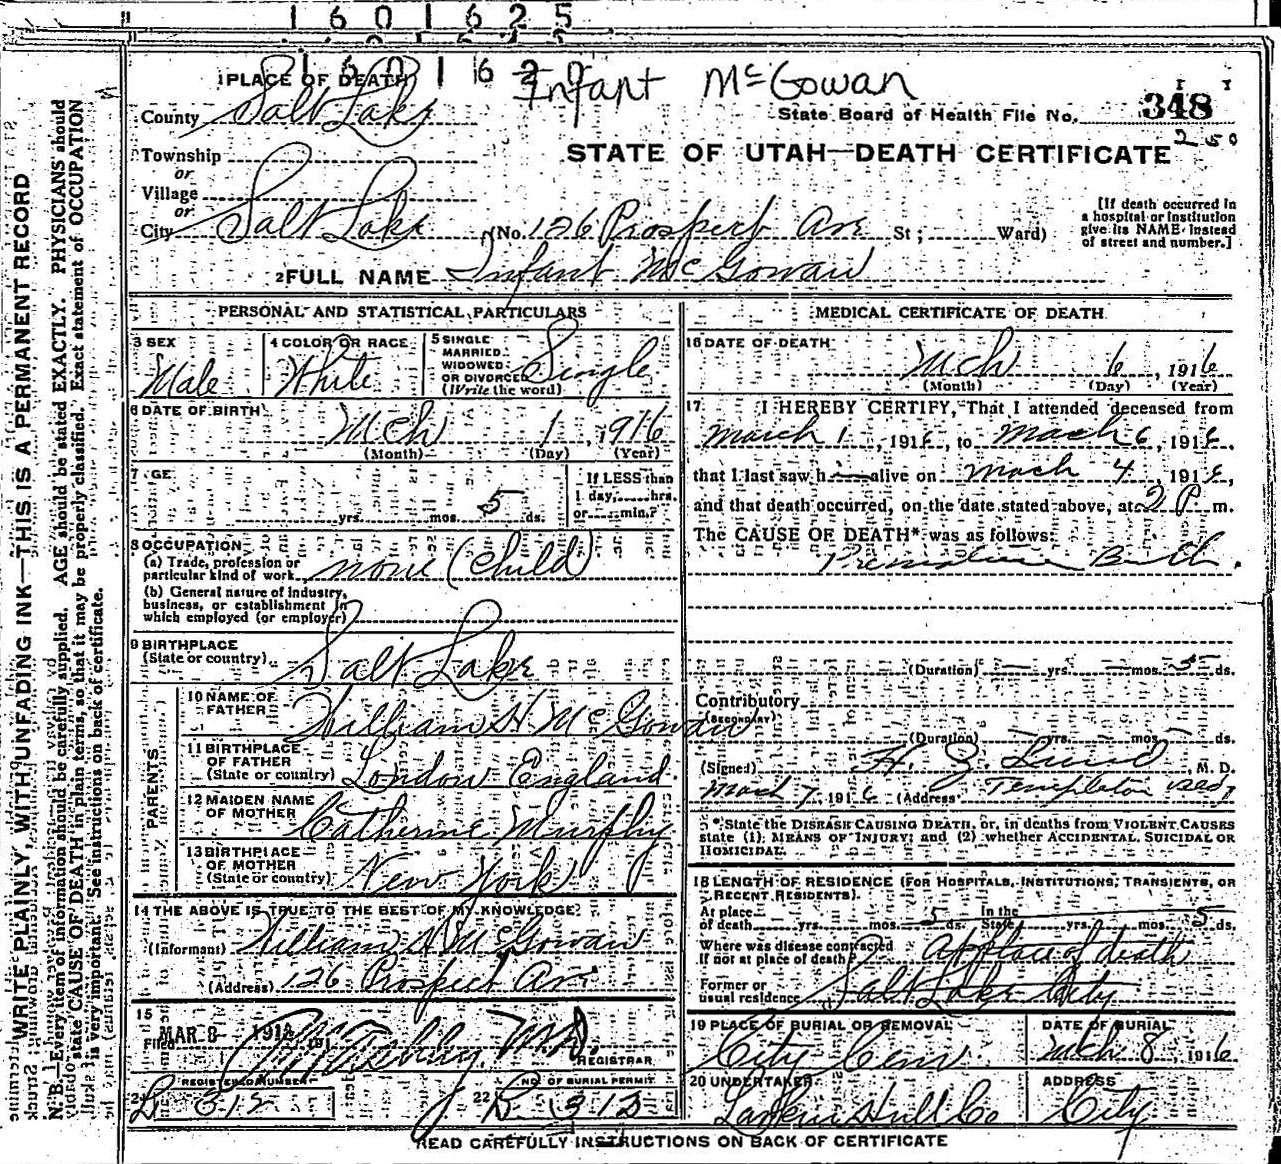 1601625
Infant McGowan
1 PLACE OF DEATH
County Salt Lake
State Board of Health File No. 348
260
STATE OF UTAH—DEATH CERTIFICATE
Township
or
Village
or
City Salt Lake (No. 126 Prospect Ave St; Ward)
[If death occurred in
a hospital or institution
give its NAME instead
of street and number.]
2 FULL NAME Infant McGowan
PERSONAL AND STATISTICAL PARTICULARS
3 SEX Male
4 COLOR OR RACE White
5 SINGLE
MARRIED
WIDOWED
OR DIVORCED
(Write the word) Single
6 DATE OF BIRTH
Mch 1, 1916
(Month) (Day) (Year)
7 AGE
yrs. mos. 5 ds.
If LESS than
1 day, hrs.
or min.?
8 OCCUPATION
(a) Trade, profession or
particular kind of work none (child)
(b) General nature of industry,
business, or establishment in
which employed (or employer)
9 BIRTHPLACE
(State or country) Salt Lake
PARENTS
10 NAME OF
FATHER William H McGowan
11 BIRTHPLACE
OF FATHER
(State or country) London England
12 MAIDEN NAME
OF MOTHER Catherine Murphy
13 BIRTHPLACE
OF MOTHER
(State or country) New York
14 THE ABOVE IS TRUE TO THE BEST OF MY KNOWLEDGE
(Informant) William H McGowan
(Address) 126 Prospect Ave
15
Filed MAR 8 191
M.D.
REGISTRAR
REGISTERED NUMBER
22 NO. OF BURIAL PERMIT
MEDICAL CERTIFICATE OF DEATH
16 DATE OF DEATH
Mch 6, 1916
(Month) (Day) (Year)
17 I HEREBY CERTIFY, That I attended deceased from
March 1, 1916, to March 6, 1916,
that I last saw h alive on March 4 1916,
and that death occurred, on the date stated above, at 2 P m.
The CAUSE OF DEATH* was as follows:
Premature Birth.
(Duration) yrs. mos. 5 ds.
Contributory
(SECONDARY)
(Duration) yrs. mos. ds.
(Signed) H. Z. Lund M. D.
March 7, 1916 (Address) Templeton Bldg
* State the DISEASE CAUSING DEATH, or, in deaths from VIOLENT CAUSES
state (1) MEANS OF INJURY; and (2) whether ACCIDENTAL, SUICIDAL OR
HOMICIDAL.
18 LENGTH OF RESIDENCE (FOR HOSPITALS, INSTITUTIONS, TRANSIENTS, OR
RECENT RESIDENTS).
At place
of death yrs. mos. 5 ds. In the
State yrs. mos. 5 ds.
Where was disease contracted
If not at place of death? At place of death
Former or
usual residence Salt Lake City
19 PLACE OF BURIAL OR REMOVAL
City Cem.
DATE OF BURIAL
Mch 8 1916
20 UNDERTAKER
Larkin Hull Co
ADDRESS
City
READ CAREFULLY INSTRUCTIONS ON BACK OF CERTIFICATE
WRITE PLAINLY, WITH UNFADING INK—THIS IS A PERMANENT RECORD
N. B.—Every item of information should be carefully supplied. AGE should be stated EXACTLY. PHYSICIANS should
state CAUSE OF DEATH in plain terms, so that it may be properly classified. Exact statement of OCCUPATION
is very important. See instructions on back of certificate.